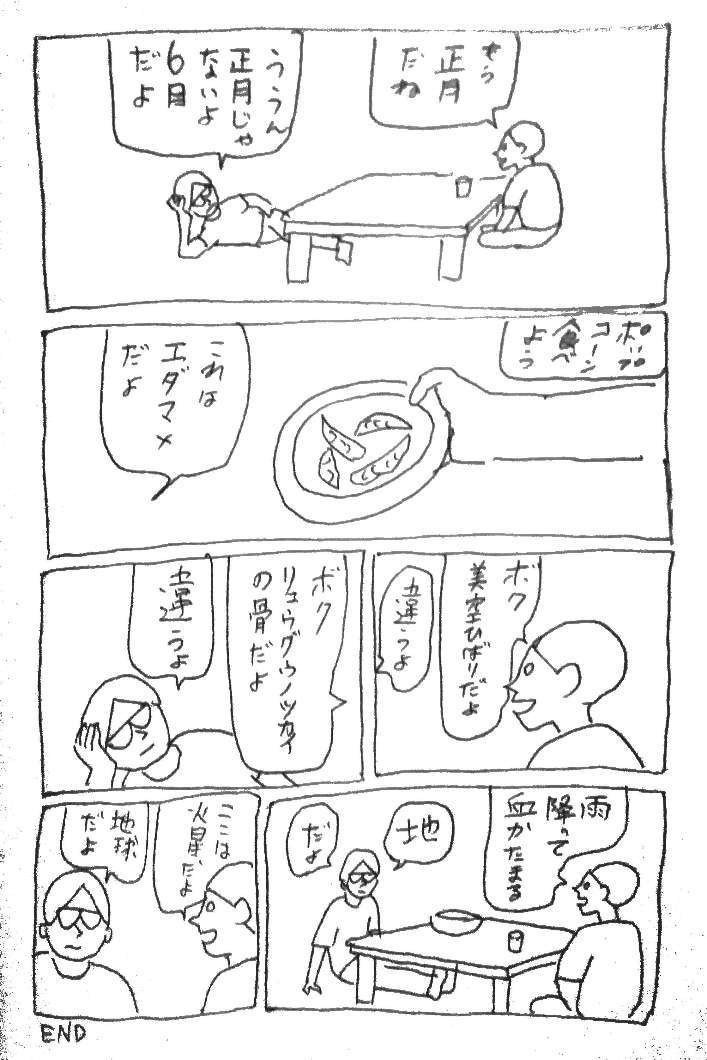 もう
正月
だね
ううん
正月じゃ
ないよ
6月
だよ
ポップ
コーン
食べ
よう
これは
エダマメ
だよ
ボク
美空ひばりだよ
違うよ
ボク
リュウグウノツカイ
の骨だよ
違うよ
雨
降って
血かたまる
地
だよ
ここは
火星だよ
地球
だよ
END